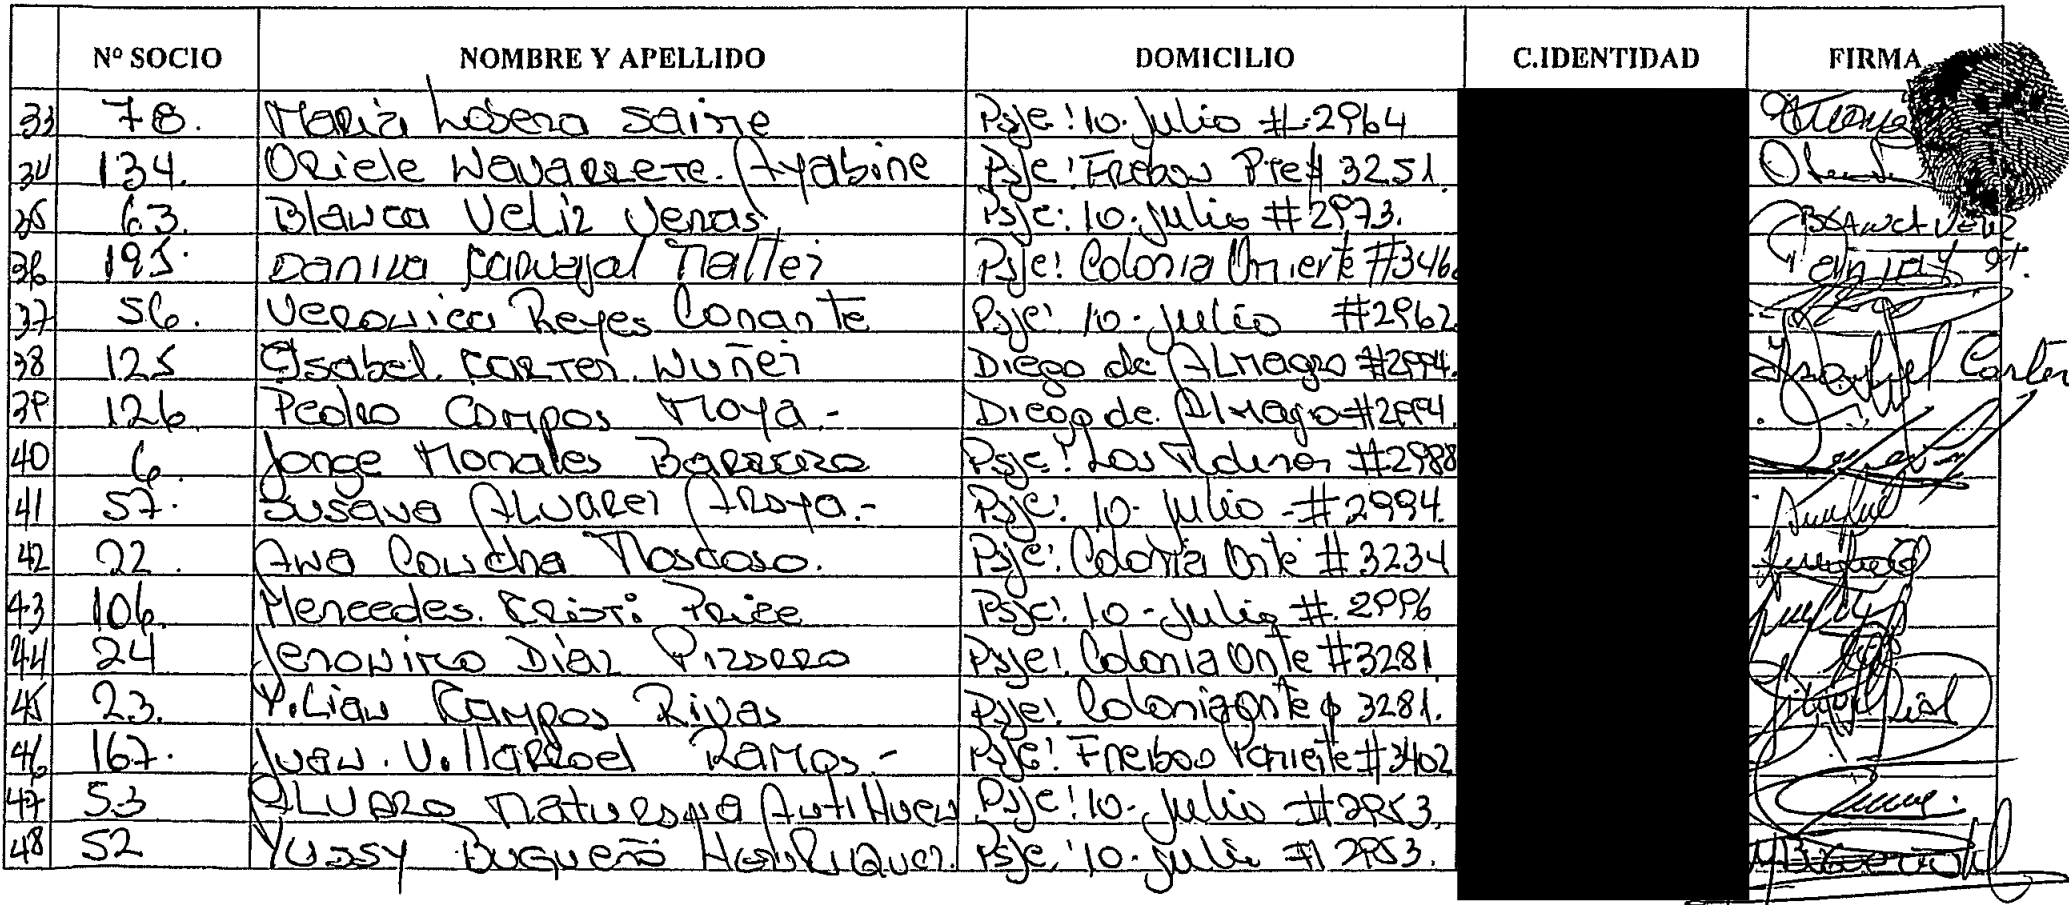 Nº SOCIO NOMBRE Y APELLIDO DOMICILIO C.IDENTIDAD FIRMA
33 78. Maria Lobera Saire Psje: 10. Julio # 2964
34 134. Oriele Navarrete. Ayabire Psje: Frebow Pte# 3251.
35 63. Blanca Veliz Venas Psje: 10. Julio #2973. Blanca Veliz
36 195. Danitza Carvajal Mattei Psje: Colonia Oriente #346
37 56. Veronica Reyes Conante Psje: 10. Julio #2962
38 125 Isabel. Cortez. Nuñez Diego de Almagro #2994. Ysabel Cortez
39 126 Pedro Campos Moya.- Diego de. Almago #2994.
40 6 Jorge Morales Barrera Psje: Los #2988
41 57. Susana Alvarez Araya.- Psje: 10. Julio # 2994.
42 22. Ana Concha Moscoso. Psje: Colonia Onte # 3234
43 106. Mercedes. Cristi Price Psje: 10 - Julio #. 2996
44 24 Jeronimo Diaz Pizarro Psje: Colonia Onte #3281
45 23. Lilian Campos Rivas Psje: Colonia Onte 3281.
46 167. Juan. Villarroel Ramos.- Psje: Freibow Poniente #3402
47 53 Alvaro Maturana Antihuen Psje: 10. Julio #2953.
48 52 Yussy Bugueño Henriquez. Psje: 10. Julio # 2953.